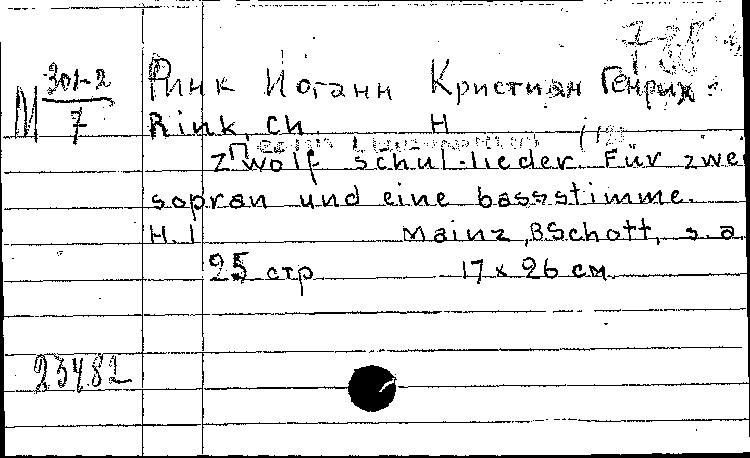 М 301-2
7
Ринк Иоганн Кристиан Генрих
Rink, Ch. H
(12)
Zwolf schul-lieder. Für zwei
sopran und eine bassstimme.
H. I Mainz, BSchott, s. a.
25 стр 17 x 26 см.
23482